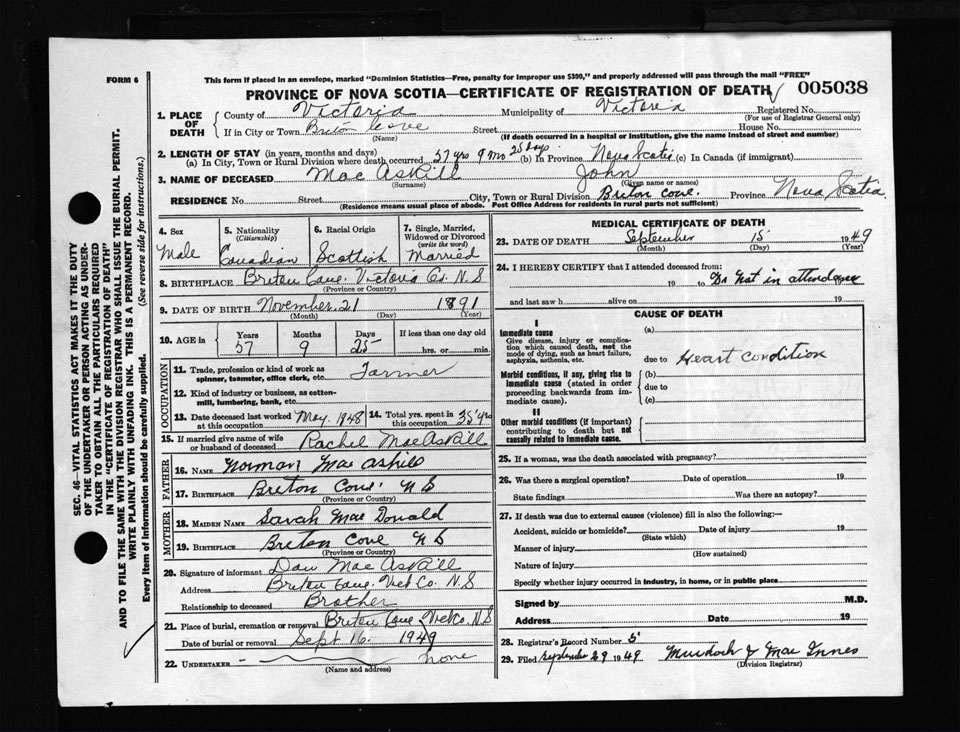 FORM 6
This form if placed in an envelope, marked "Dominion Statistics—Free, penalty for improper use $300," and properly addressed will pass through the mail "FREE"
PROVINCE OF NOVA SCOTIA—CERTIFICATE OF REGISTRATION OF DEATH 005038
SEC. 46—VITAL STATISTICS ACT MAKES IT THE DUTY
OF THE UNDERTAKER OR PERSON ACTING AS UNDER-
TAKER TO OBTAIN ALL THE PARTICULARS REQUIRED
IN THE "CERTIFICATE OF REGISTRATION OF DEATH"
AND TO FILE THE SAME WITH THE DIVISION REGISTRAR WHO SHALL ISSUE THE BURIAL PERMIT.
WRITE PLAINLY WITH UNFADING INK. THIS IS A PERMANENT RECORD.
Every item of information should be carefully supplied. (See reverse side for instructions.)
1. PLACE OF DEATH
County of Victoria Municipality of Victoria Registered No.
(For use of Registrar General only)
If in City or Town Breton Cove Street House No.
(Name) (If death occurred in a hospital or institution, give the name instead of street and number)
2. LENGTH OF STAY (in years, months and days)
(a) In City, Town or Rural Division where death occurred 57 yrs 9 mo 25 days (b) In Province Nova Scotia (c) In Canada (if immigrant)
3. NAME OF DECEASED Mac Askill John
(Surname) (Given name or names)
RESIDENCE No. Street City, Town or Rural Division Breton Cove. Province Nova Scotia
(Residence means usual place of abode. Post Office Address for residents in rural parts not sufficient)
4. Sex
Male
5. Nationality
(Citizenship)
Canadian
6. Racial Origin
Scottish
7. Single, Married,
Widowed or Divorced
(write the word)
Married
8. BIRTHPLACE Breton Cove. Victoria Co. N.S
(Province or Country)
9. DATE OF BIRTH November 21 1891
(Month) (Day) (Year)
10. AGE in Years Months Days If less than one day old
57 9 25 hrs. or min.
OCCUPATION
11. Trade, profession or kind of work as
spinner, teamster, office clerk, etc. Farmer
12. Kind of industry or business, as cotton-
mill, lumbering, bank, etc.
13. Date deceased last worked at this occupation May. 1948
14. Total yrs. spent in this occupation 35 yrs
15. If married give name of wife
or husband of deceased Rachel MacAskill
FATHER
16. NAME Norman Mac Askill
17. BIRTHPLACE Breton Cove. N S
(Province or Country)
MOTHER
18. MAIDEN NAME Sarah Mac Donald
19. BIRTHPLACE Breton Cove N S
(Province or Country)
20. Signature of informant Dan Mac Askill
Address Breton Cove. Vict Co. N.S
Relationship to deceased Brother
21. Place of burial, cremation or removal Breton Cove Vict Co. N.S
Date of burial or removal Sept 16. 1949
22. UNDERTAKER none
(Name and address)
MEDICAL CERTIFICATE OF DEATH
23. DATE OF DEATH September 15 1949
(Month) (Day) (Year)
24. I HEREBY CERTIFY that I attended deceased from:
19 to Dr Not in attendance
and last saw h alive on 19
CAUSE OF DEATH
I
Immediate cause
Give disease, injury or complica-
tion which caused death, not the
mode of dying, such as heart failure,
asphyxia, asthenia, etc.
(a)
due to Heart Condition
Morbid conditions, if any, giving rise to
immediate cause (stated in order
proceeding backwards from im-
mediate cause).
(b)
due to
(c)
II
Other morbid conditions (if important)
contributing to death but not
causally related to immediate cause.
25. If a woman, was the death associated with pregnancy?
26. Was there a surgical operation? Date of operation 19
State findings Was there an autopsy?
27. If death was due to external causes (violence) fill in also the following:—
Accident, suicide or homicide? Date of injury 19
(State which)
Manner of injury
(How sustained)
Nature of injury
Specify whether injury occurred in industry, in home, or in public place
Signed by M.D.
Address Date 19
28. Registrar's Record Number 5
29. Filed September 29 1949 Murdoch J Mac Innes
(Division Registrar)